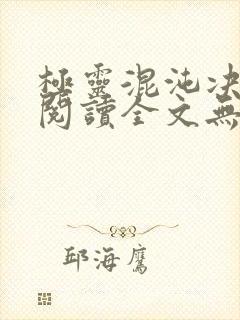 極靈混沌決
閱讀全文無
邱海鷹